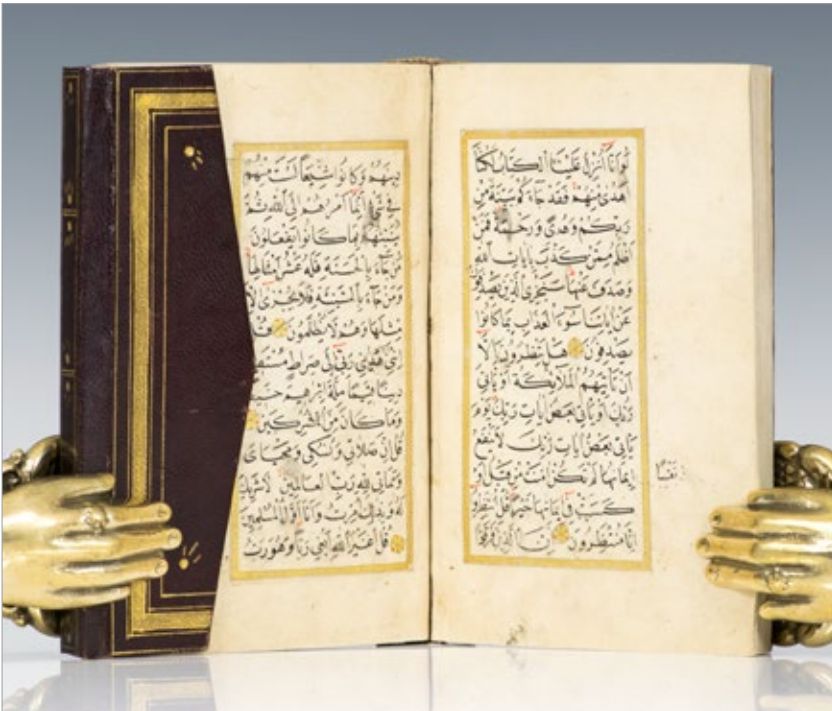 لَوْ أَنَّا أُنْزِلَ عَلَيْنَا الْكِتَابُ لَكُنَّا
أَهْدَى مِنْهُمْ فَقَدْ جَاءَكُمْ بَيِّنَةٌ مِنْ
رَبِّكُمْ وَهُدًى وَرَحْمَةٌ فَمَنْ
أَظْلَمُ مِمَّنْ كَذَّبَ بِآيَاتِ اللَّهِ
وَصَدَفَ عَنْهَا سَنَجْزِي الَّذِينَ يَصْدِفُونَ
عَنْ آيَاتِنَا سُوءَ الْعَذَابِ بِمَا كَانُوا
يَصْدِفُونَ هَلْ يَنْظُرُونَ إِلَّا
أَنْ تَأْتِيَهُمُ الْمَلَائِكَةُ أَوْ يَأْتِيَ
رَبُّكَ أَوْ يَأْتِيَ بَعْضُ آيَاتِ رَبِّكَ يَوْمَ
يَأْتِي بَعْضُ آيَاتِ رَبِّكَ لَا يَنْفَعُ
نَفْسًا
إِيمَانُهَا لَمْ تَكُنْ آمَنَتْ مِنْ قَبْلُ أَوْ
كَسَبَتْ فِي إِيمَانِهَا خَيْرًا قُلِ انْتَظِرُوا
إِنَّا مُنْتَظِرُونَ إِنَّ الَّذِينَ فَرَّقُوا
دِينَهُمْ وَكَانُوا شِيَعًا لَسْتَ مِنْهُمْ
فِي شَيْءٍ إِنَّمَا أَمْرُهُمْ إِلَى اللَّهِ ثُمَّ
يُنَبِّئُهُمْ بِمَا كَانُوا يَفْعَلُونَ
مَنْ جَاءَ بِالْحَسَنَةِ فَلَهُ عَشْرُ أَمْثَالِهَا
وَمَنْ جَاءَ بِالسَّيِّئَةِ فَلَا يُجْزَى إِلَّا
مِثْلَهَا وَهُمْ لَا يُظْلَمُونَ قُلْ
إِنَّنِي هَدَانِي رَبِّي إِلَى صِرَاطٍ
دِينًا قِيَمًا مِلَّةَ إِبْرَهِيمَ
وَمَا كَانَ مِنَ الْمُشْرِكِينَ
قُلْ إِنَّ صَلَاتِي وَنُسُكِي وَمَحْيَايَ
وَمَمَاتِي لِلَّهِ رَبِّ الْعَالَمِينَ لَا شَرِيكَ
لَهُ وَبِذَلِكَ أُمِرْتُ وَأَنَا أَوَّلُ الْمُسْلِمِينَ
قُلْ أَغَيْرَ اللَّهِ أَبْغِي رَبًّا وَهُوَ رَبُّ